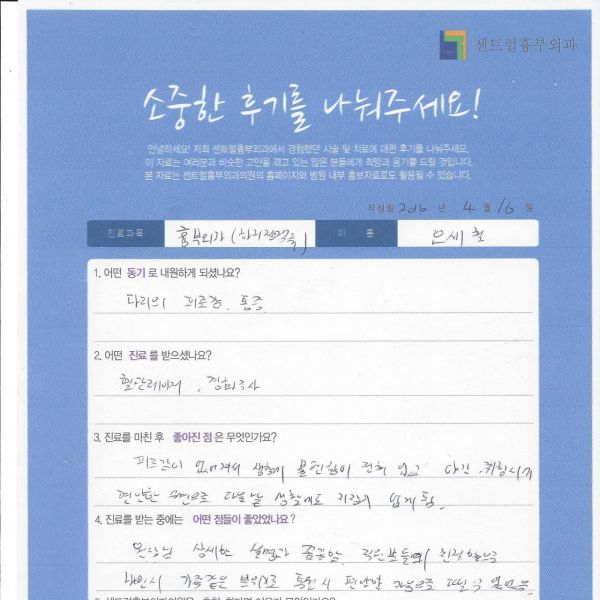 센트럴흉부외과
소중한 후기를 나눠주세요!
안녕하세요! 저희 센트럴흉부외과에서 경험했던 시술 및 치료에 대한 후기를 나눠주세요.
이 자료는 여러분과 비슷한 고민을 겪고 있는 많은 분들에게 희망과 용기를 드릴 것입니다.
본 자료는 센트럴흉부외과의원의 홈페이지와 병원 내부 홍보자료로도 활용될 수 있습니다.
작성일 2016 년 4 월 16 일
진료과목 흉부외과 (하지정맥류) 이 름 오세철
1. 어떤 동기로 내원하게 되셨나요?
다리의 피로감, 통증
2. 어떤 진료를 받으셨나요?
혈관레이저, 경화주사
3. 진료를 마친 후 좋아진 점은 무엇인가요?
피로감이 없어져서 생활에 불편함이 전혀 없고 야간 취침시
편안한 수면으로 다음날 생활에도 지장이 없게 됨.
4. 진료를 받는 중에는 어떤 점들이 좋았었나요?
원장님 상세한 설명과 꼼꼼함, 직원분들의 친절함으로
가족같은 분위기로 통원시 편안한 마음으로 다닐 수 있었음